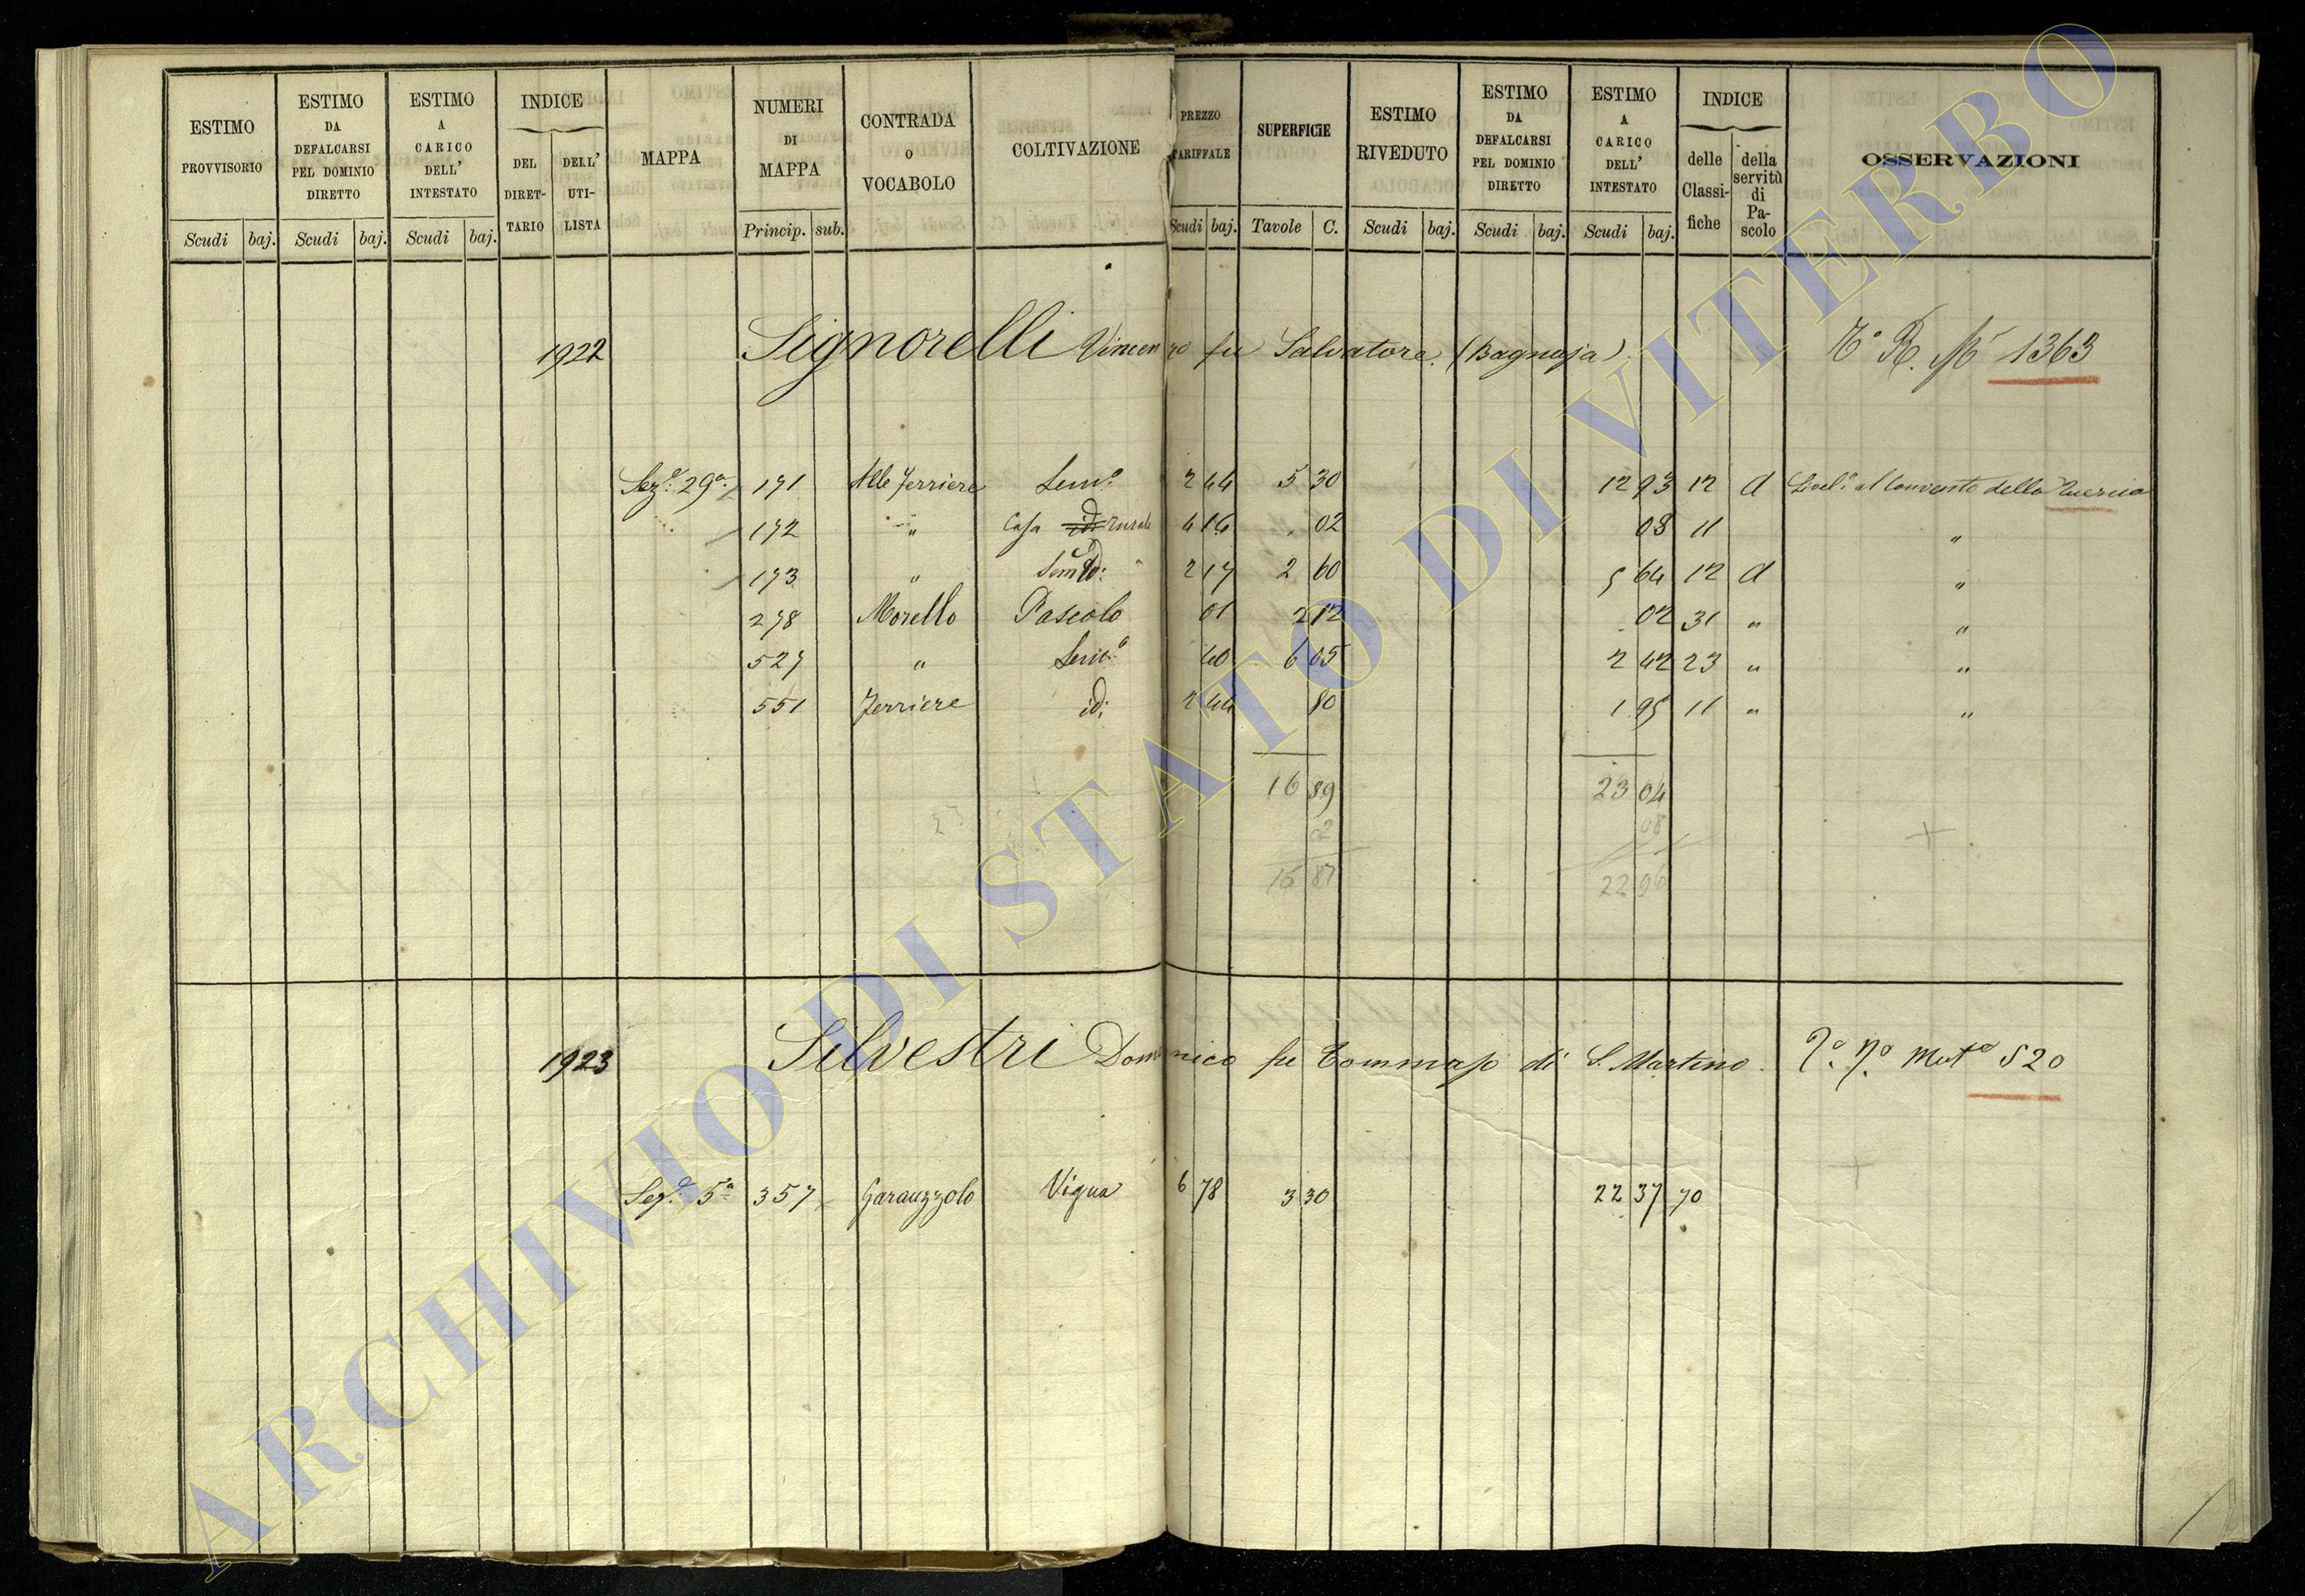 ESTIMO PROVVISORIO Scudi baj.
ESTIMO DA DEFALCARSI PEL DOMINIO DIRETTO Scudi baj.
ESTIMO A CARICO DELL' INTESTATO Scudi baj.
INDICE DEL DIRET-TARIO DELL' UTI-LISTA
MAPPA
NUMERI DI MAPPA Princip. sub.
CONTRADA O VOCABOLO
COLTIVAZIONE
PREZZO TARIFFALE Scudi baj.
SUPERFICIE Tavole C.
ESTIMO RIVEDUTO Scudi baj.
ESTIMO DA DEFALCARSI PEL DOMINIO DIRETTO Scudi baj.
ESTIMO A CARICO DELL' INTESTATO Scudi baj.
INDICE delle Classi-fiche della servitù di Pa-scolo
OSSERVAZIONI
1922 Signorelli Vincenzo fu Salvatore. (Bagnaja) 1363
Sez.e 29a 171 Alle Ferriere Sem.o 2 44 5 30 12 93 12 d Livel.o al Convento della Quercia
172 " Casa id: rurale 4 16 . 02 08 11 "
173 " Sem.o 2 17 2 60 5 64 12 d "
278 Morello Pascolo 01 2 12 02 31 " "
527 " Sem.o 40 6 05 2 42 23 " "
551 Ferriere id: 2 44 80 1 95 11 " "
16 89 23 04
02 08
16 87 22 96
1923 Silvestri Domenico fu Tommaso di S. Martino. Mut.a 520
Sez.e 5a 357 Garauzzolo Vigna 6 78 3 30 22 37 70
ARCHIVIO DI STATO DI VITERBO